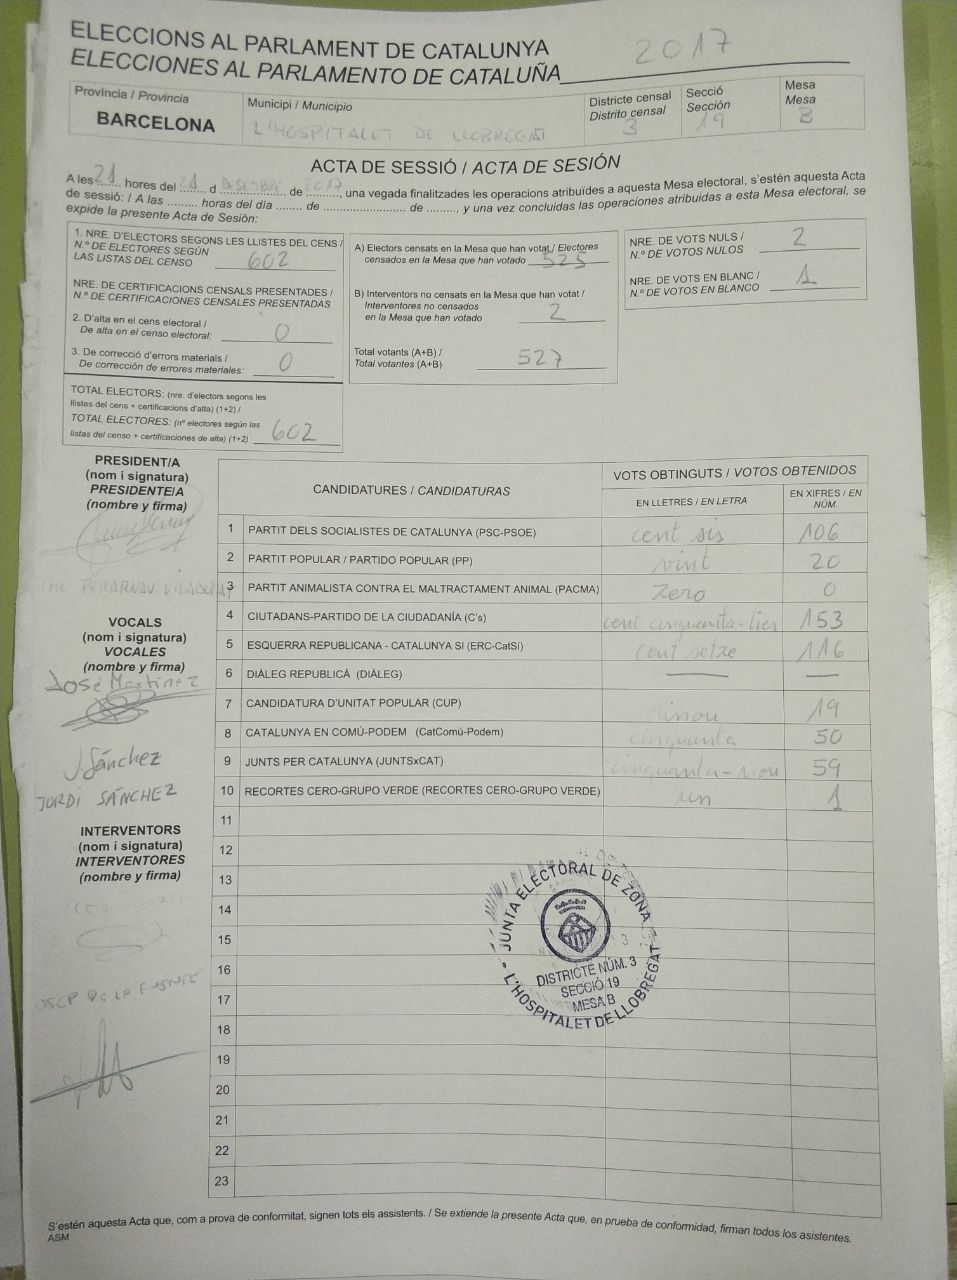 ELECCIONS AL PARLAMENT DE CATALUNYA
ELECCIONES AL PARLAMENTO DE CATALUÑA 2017
Província / Provincia
BARCELONA
Municipi / Municipio
L'HOSPITALET DE LLOBREGAT
Districte censal
Distrito censal
3
Secció
Sección
19
Mesa
Mesa
B
ACTA DE SESSIÓ / ACTA DE SESIÓN
A les 21 hores del 21 d DESEMBRE de 2017, una vegada finalitzades les operacions atribuïdes a aquesta Mesa electoral, s'estén aquesta Acta
de sessió: / A las ......... horas del día ........ de ......................... de ........., y una vez concluidas las operaciones atribuidas a esta Mesa electoral, se
expide la presente Acta de Sesión:
1. NRE. D'ELECTORS SEGONS LES LLISTES DEL CENS /
N.º DE ELECTORES SEGÚN
LAS LISTAS DEL CENSO 602
NRE. DE CERTIFICACIONS CENSALS PRESENTADES /
N.º DE CERTIFICACIONES CENSALES PRESENTADAS
2. D'alta en el cens electoral /
De alta en el censo electoral: 0
3. De correcció d'errors materials /
De corrección de errores materiales: 0
TOTAL ELECTORS: (nre. d'electors segons les
llistes del cens + certificacions d'alta) (1+2) /
TOTAL ELECTORES: (nº electores según las
listas del censo + certificaciones de alta) (1+2) 602
A) Electors censats en la Mesa que han votat / Electores
censados en la Mesa que han votado 525
B) Interventors no censats en la Mesa que han votat /
Interventores no censados
en la Mesa que han votado 2
Total votants (A+B) /
Total votantes (A+B) 527
NRE. DE VOTS NULS /
N.º DE VOTOS NULOS 2
NRE. DE VOTS EN BLANC /
N.º DE VOTOS EN BLANCO 1
PRESIDENT/A
(nom i signatura)
PRESIDENTE/A
(nombre y firma)
VOCALS
(nom i signatura)
VOCALES
(nombre y firma)
José Martínez
J. Sánchez
JORDI SÁNCHEZ
INTERVENTORS
(nom i signatura)
INTERVENTORES
(nombre y firma)
CANDIDATURES / CANDIDATURAS
VOTS OBTINGUTS / VOTOS OBTENIDOS
EN LLETRES / EN LETRA
EN XIFRES / EN NÚM.
1 PARTIT DELS SOCIALISTES DE CATALUNYA (PSC-PSOE) cent sis 106
2 PARTIT POPULAR / PARTIDO POPULAR (PP) vint 20
3 PARTIT ANIMALISTA CONTRA EL MALTRACTAMENT ANIMAL (PACMA) Zero 0
4 CIUTADANS-PARTIDO DE LA CIUDADANÍA (C's) cent cinquanta-tres 153
5 ESQUERRA REPUBLICANA - CATALUNYA SI (ERC-CatSí) cent setze 116
6 DIÀLEG REPUBLICÀ (DIÀLEG) — —
7 CANDIDATURA D'UNITAT POPULAR (CUP) dinou 19
8 CATALUNYA EN COMÚ-PODEM (CatComú-Podem) cinquanta 50
9 JUNTS PER CATALUNYA (JUNTSxCAT) cinquanta-nou 59
10 RECORTES CERO-GRUPO VERDE (RECORTES CERO-GRUPO VERDE) un 1
11
12
13
14
15
16
17
18
19
20
21
22
23
JUNTA ELECTORAL DE ZONA
DISTRICTE NÚM. 3
SECCIÓ 19
MESA B
- L'HOSPITALET DE LLOBREGAT -
S'estén aquesta Acta que, com a prova de conformitat, signen tots els assistents. / Se extiende la presente Acta que, en prueba de conformidad, firman todos los asistentes.
ASM